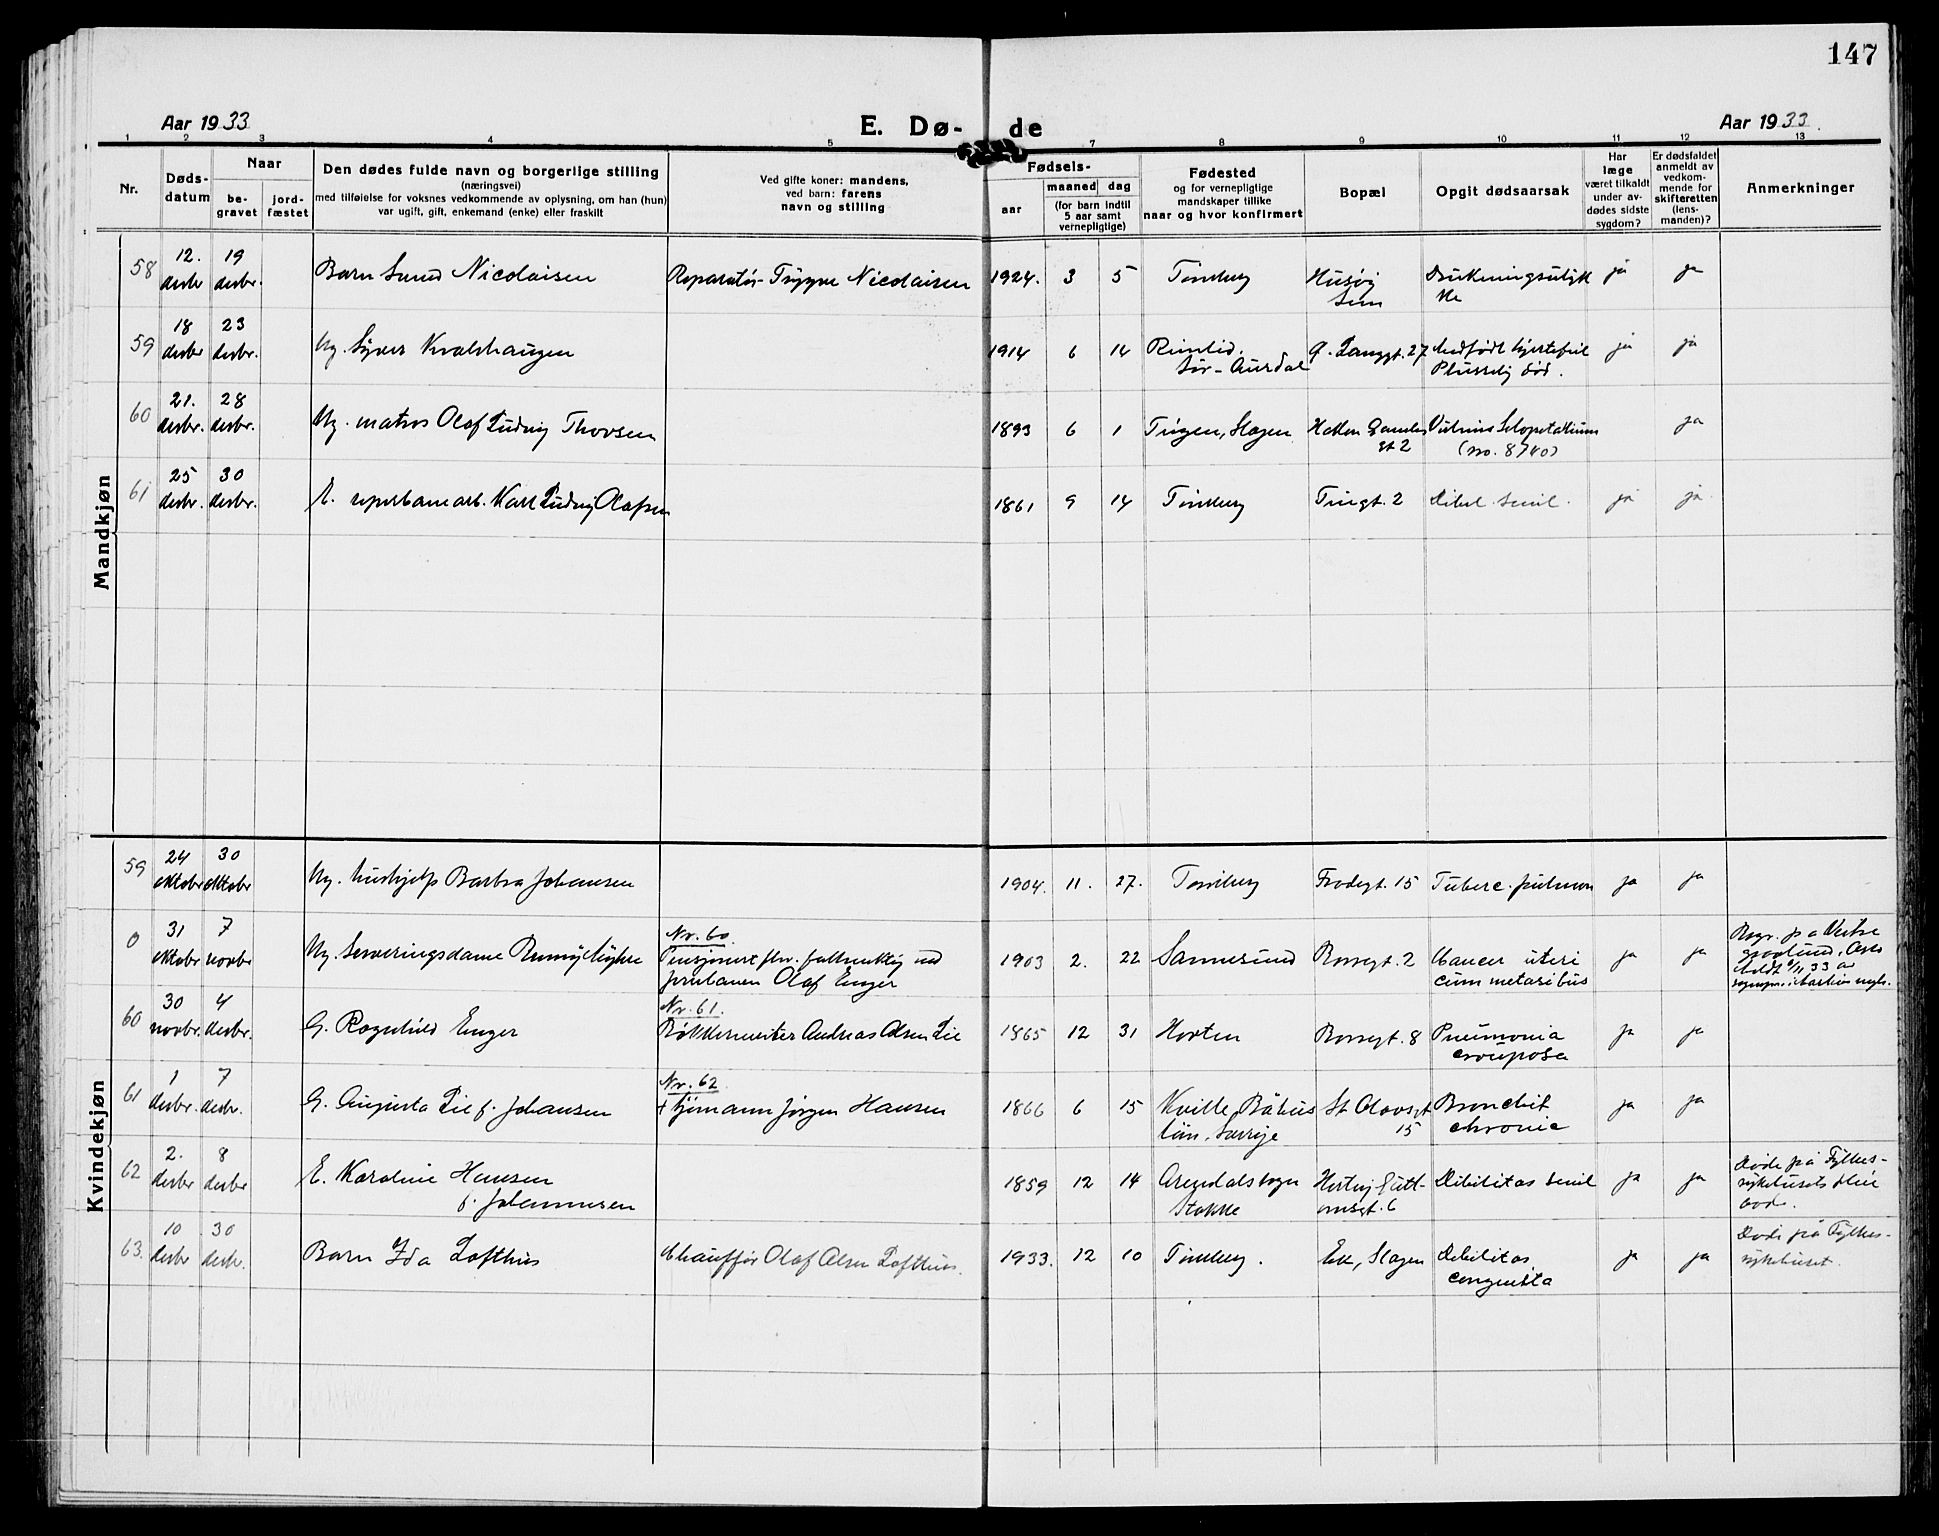 147
Aar 1933
E. Dø-
de
Aar 1933.
1 2 3 4 5 7 8 9 10 11 12 13
Nr.
Døds-
datum
Naar
be-
gravet
jord-
fæstet
Den dødes fulde navn og borgerlige stilling
(næringsvei)
med tilføielse for voksnes vedkommende av oplysning, om han (hun)
var ugift, gift, enkemand (enke) eller fraskilt
Ved gifte koner: mandens,
ved barn: farens
navn og stilling
Fødsels-
aar
maaned
dag
(for barn indtil
5 aar samt
vernepligtige)
Fødested
og for vernepligtige
mandskaper tillike
naar og hvor konfirmert
Bopæl
Opgit dødsaarsak
Har
læge
været tilkaldt
under av-
dødes sidste
sygdom?
Er dødsfaldet
anmeldt av
vedkom-
mende for
skifteretten
(lens-
manden)?
Anmerkninger
Mandkjøn
58
12. desbr
19 desbr.
Barn Nicolaisen
Reparatør Trygve Nicolaisen
1924. 3 5
Tønsberg
Husøy
Sem
Drukningsulyk
ke
ja ja
59
18 desbr
23 desbr.
Ug. Syver Kvalehaugen
1914 6 14
Sør-Aurdal
Ø. Langgt. 27
Medfødt hjertefeil
Plusselig død.
ja ja
60
21. desbr.
28 desbr.
Ug. matros Olaf Ludvig Thovsen
1893 6 1
Slagen
Håkon Gamles
gt 2
Vulnus Sclopetarium
(no. 8740)
ja
61
25 desbr.
30 desbr.
E. reperbanearb. Karl Ludvig Olafsen
1861 9 14
Tønsberg
Tingt. 2
Debil. senil.
ja ja
Kvindekjøn
59
24 oktobr
30 oktobr
Ug. hushjelp Barbra Johansen
1904. 11. 27.
Tønsberg
Frodegt. 15
Tuberc. pulmon
ja ja
0
31 oktobr
7 novbr
Ug. Serveringsdame
Nr. 60.
Pensjonert
jernbanen Olaf Enger
1903 2. 22
Sannesund
Borregt. 2
Cancer uteri
cum metasibus
ja ja
Begr. på Vestre
gravlund, Oslo
60
30 novbr.
4 desbr.
G. Ragnhild Enger
Nr. 61.
Bøkkermester Andreas Olsen Lie
1865 12 31
Horten
Borregt. 8
Pneumonia
crouposa
ja ja
61
1 desbr.
7 desbr.
G. Augusta Lie f. Johansen
Nr. 62
+ sjømann Jørgen Hansen
1866 6 15
Kville, Båhus
län, Sverrige
St Olavsgt
15
Bronchit
chronic
ja ja
62
2. desbr
8 desbr
E. Karoline Hansen
f. Johannesen
1859 12 14
Arendalskogn
Stokke
Hertug Gutt-
omsgt. 6
Debilitas senil
ja ja
Døde på Fylkes-
sykehusets pleie
avd.
63.
10 desbr
30 desbr.
Barn Ida Lofthus
Chauffør Olaf Olsen Lofthus.
1933. 12 10
Tønsberg.
Eik, Slagen
Debilitas
congenita
ja ja
Døde på Fylkes-
sykehuset.